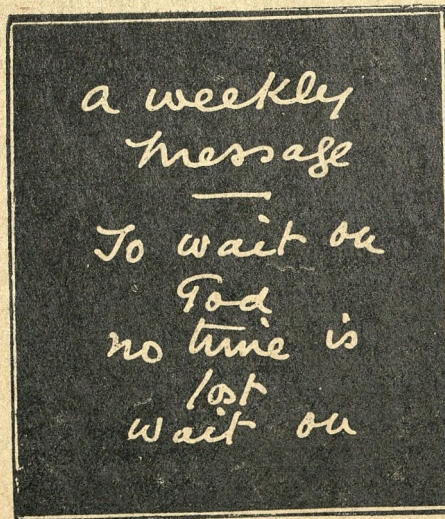 a weekly
message
To wait on
God
no time is
lost
wait on